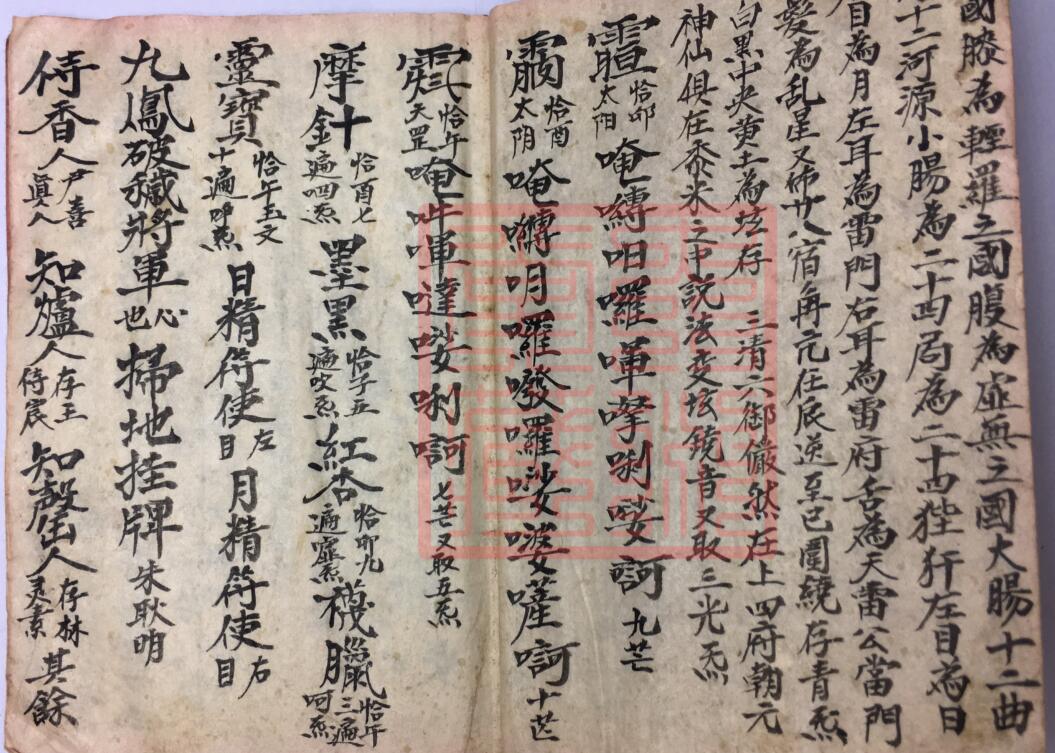 國膝為輕羅之國腹為虛無之國大腸十二曲
十二河源小腸為二十四局為二十四狴犴左目為日
右目為月左耳為雷門右耳為雷府舌為天雷公當門
髮為乱星又佈廿八宿角亢在辰逆至巳圍繞存青炁
白黑中央黄土為坛存三清六御儼然在上四府朝元
神仙俱在黍米之中説法变坛鏡音又取三光炁
恰卯太阳唵嚩囉哞唎娑訶九芒
恰酉太阴唵嚩囉囉娑婆訶十芒
恰午天罡唵吽唎訶七芒又取五炁
摩針恰酉七遍呬炁墨黑恰子五遍吹炁紅杏恰卯九遍噓炁襪臘恰午三遍呵炁
靈寶恰午玉文十遍炁日精符使左目月精符使右目
九鳳破穢將軍心也掃地挂牌朱耿明
侍香人尹喜真人知爐人存王侍宸知磬人存林灵素其餘